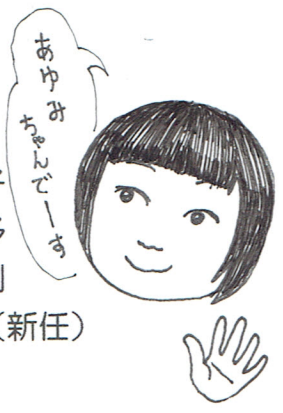 あゆみ
ちゃんでーす
(新任)